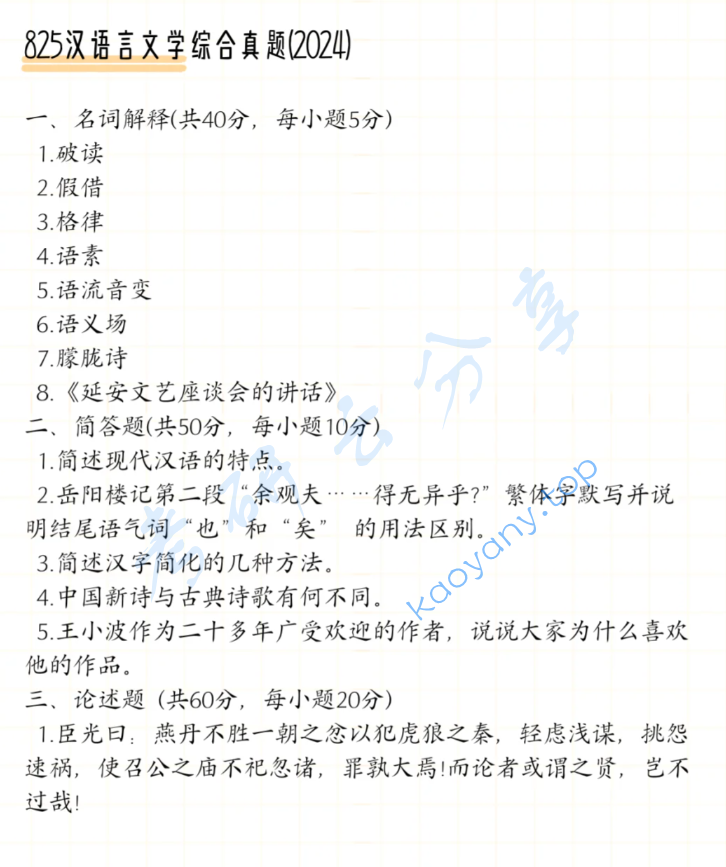 825汉语言文学综合真题(2024)
一、名词解释(共40分，每小题5分)
1.破读
2.假借
3.格律
4.语素
5.语流音变
6.语义场
7.朦胧诗
8.《延安文艺座谈会的讲话》
二、简答题(共50分，每小题10分)
1.简述现代汉语的特点。
2.岳阳楼记第二段“余观夫……得无异乎?”繁体字默写并说
明结尾语气词“也”和“矣” 的用法区别。
3.简述汉字简化的几种方法。
4.中国新诗与古典诗歌有何不同。
5.王小波作为二十多年广受欢迎的作者，说说大家为什么喜欢
他的作品。
三、论述题 (共60分，每小题20分)
1.臣光曰：燕丹不胜一朝之忿以犯虎狼之秦，轻虑浅谋，挑怨
速祸，使召公之庙不祀忽诸，罪孰大焉!而论者或谓之贤，岂不
过哉!
考研云分享
kaoyany.top